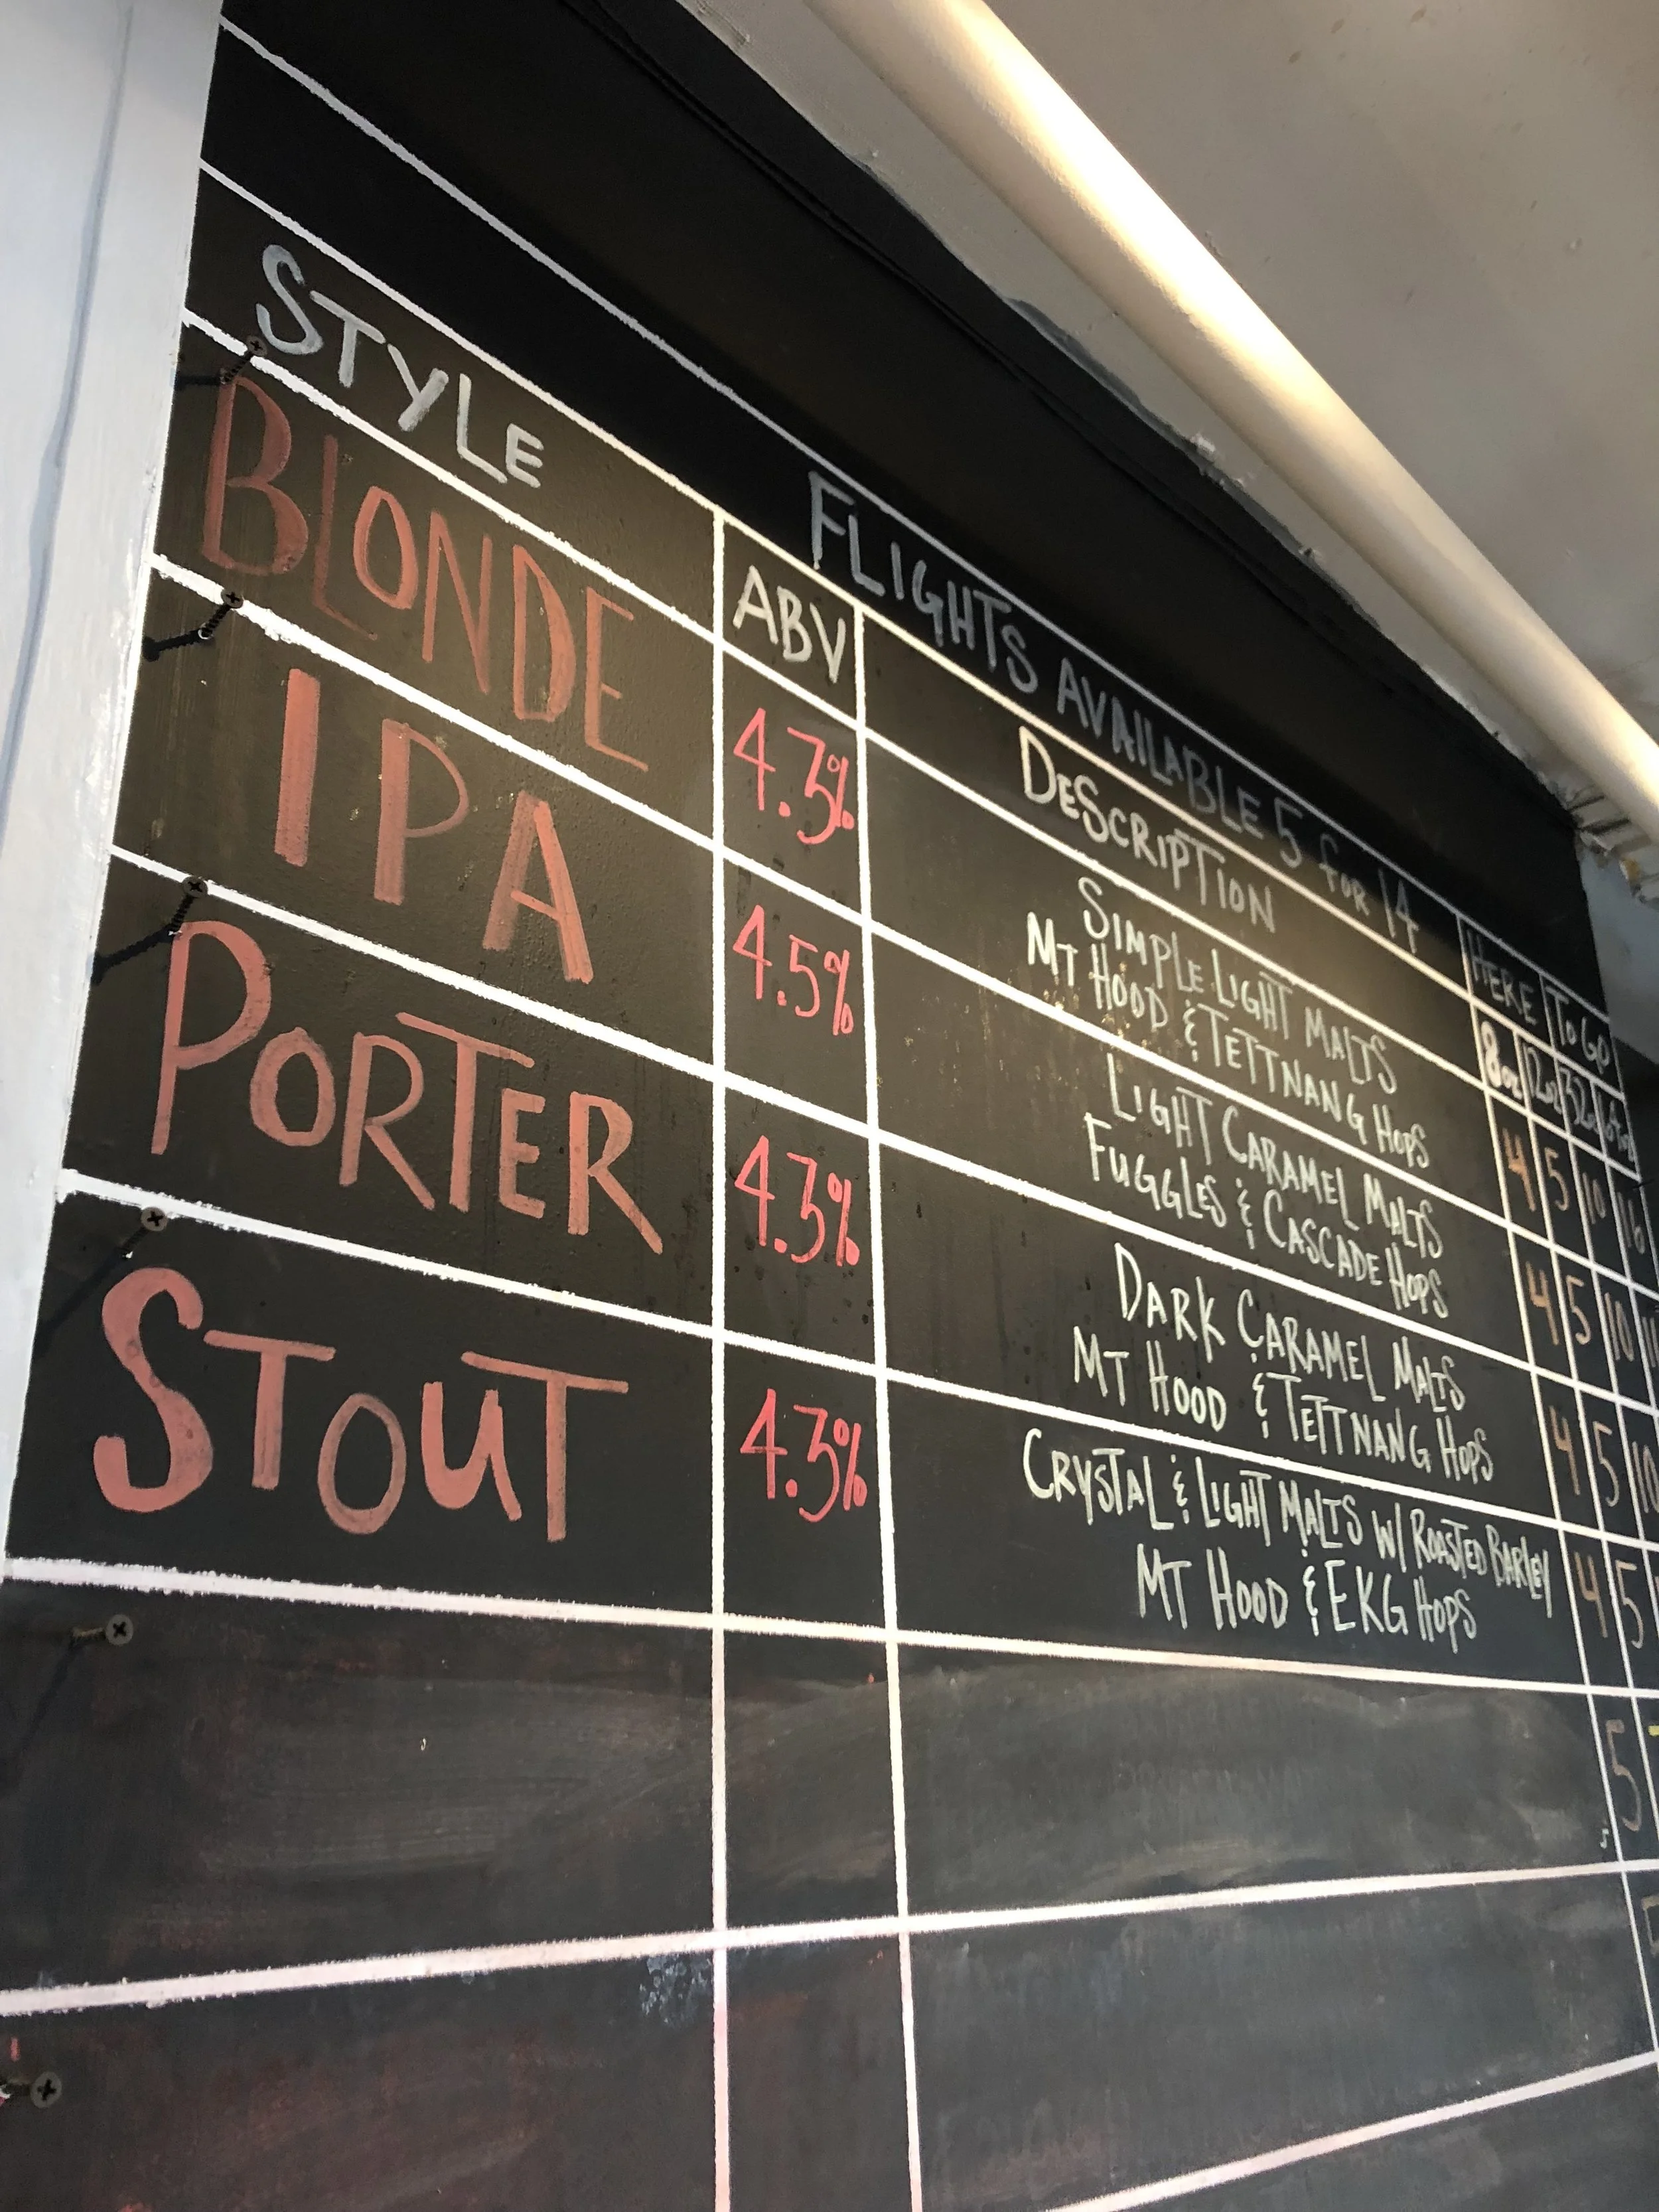 FLIGHTS AVAILABLE 5 for 14
HERE TO GO
STYLE ABV DESCRIPTION 8oz 12oz 32oz
BLONDE 4.3% SIMPLE LIGHT MALTS
MT HOOD & TETTNANG HOPS
4 5 10 16
IPA 4.5% LIGHT CARAMEL MALTS
FUGGLES & CASCADE HOPS
4 5 10
PORTER 4.3% DARK CARAMEL MALTS
MT HOOD & TETTNANG HOPS
4 5 10
STOUT 4.3% CRYSTAL & LIGHT MALTS W/ ROASTED BARLEY
MT HOOD & EKG HOPS
4 5
5